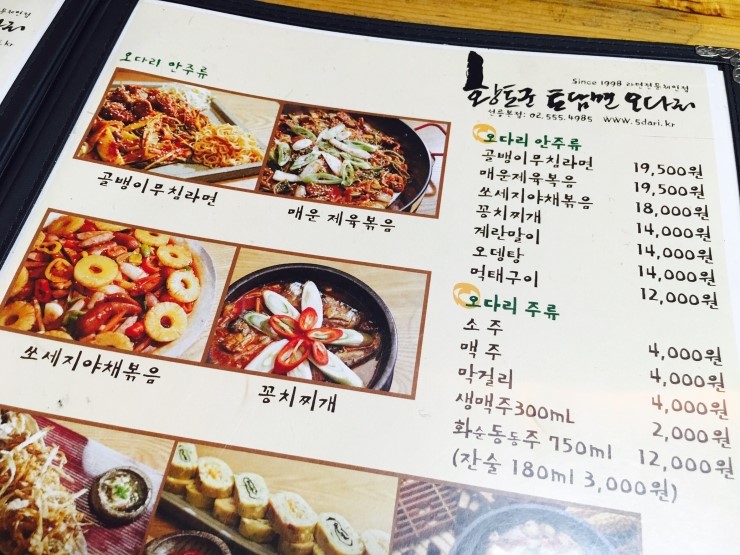 오다리 안주류
골뱅이무침라면
매운 제육볶음
쏘세지야채볶음
꽁치찌개
Since 1998 라면전통체인점
황토군 토담면 오다리
선릉본점: 02.555.4985 www.5dari.kr
오다리 안주류
골뱅이무침라면 19,500원
매운제육볶음 19,500원
쏘세지야채볶음 18,000원
꽁치찌개 14,000원
계란말이 14,000원
오뎅탕 14,000원
먹태구이 12,000원
오다리 주류
소주 4,000원
맥주 4,000원
막걸리 4,000원
생맥주300mL 2,000원
화순동동주 750ml 12,000원
(잔술 180ml 3,000원)